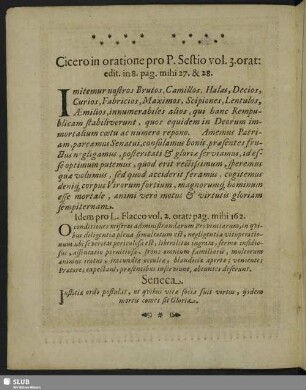 Cicero in oratione pro P. Sestio vol. 3. orat:
edit. in 8. pag. mihi 27. & 28.
Imitemur nostros Brutos, Camillos, Halas, Decios,
Curios, Fabricios, Maximos, Scipiones, Lentulos,
Æmilios, innumerabiles alios, qui hanc Rempu-
blicam stabiliverunt, quos equidem in Deorum im-
mortalium cœtu ac numero repono. Amemus Patri-
am, pareamus Senatui, consulamus bonis, præsentes fru-
ctus negligamus, posteritati & gloriæ serviamus, id es-
se optimum putemus, quod erit rectissimum, speremus
quæ volumus, sed quod acciderit feramus, cogitemus
deniq; corpus Virorum fortium, magnorumq; hominum
esse mortale, animi vero motus & virtutis gloriam
sempiternam.
Idem pro L. Flacco vol. 2. orat: pag. mihi 162.
O conditiones miseras administrandarum Provinciarum, in qvi-
bus diligentia plena simultatum est, negligentia vituperatio-
num: ubi severitas periculosa est, liberalitas ingrata, sermo insidio-
sus, assentatio perniciosa, frons omnium familiaris, multorum
animus iratus, iracundiæ occultæ, blanditiæ apertæ; venientes
Prætores expectant, præsentibus inserviunt, abeuntes deserunt.
Seneca.
Justitiæ ordo postulat, ut qvibus vitæ socia fuit virtus, ijsdem
mortis comes sit Gloria.